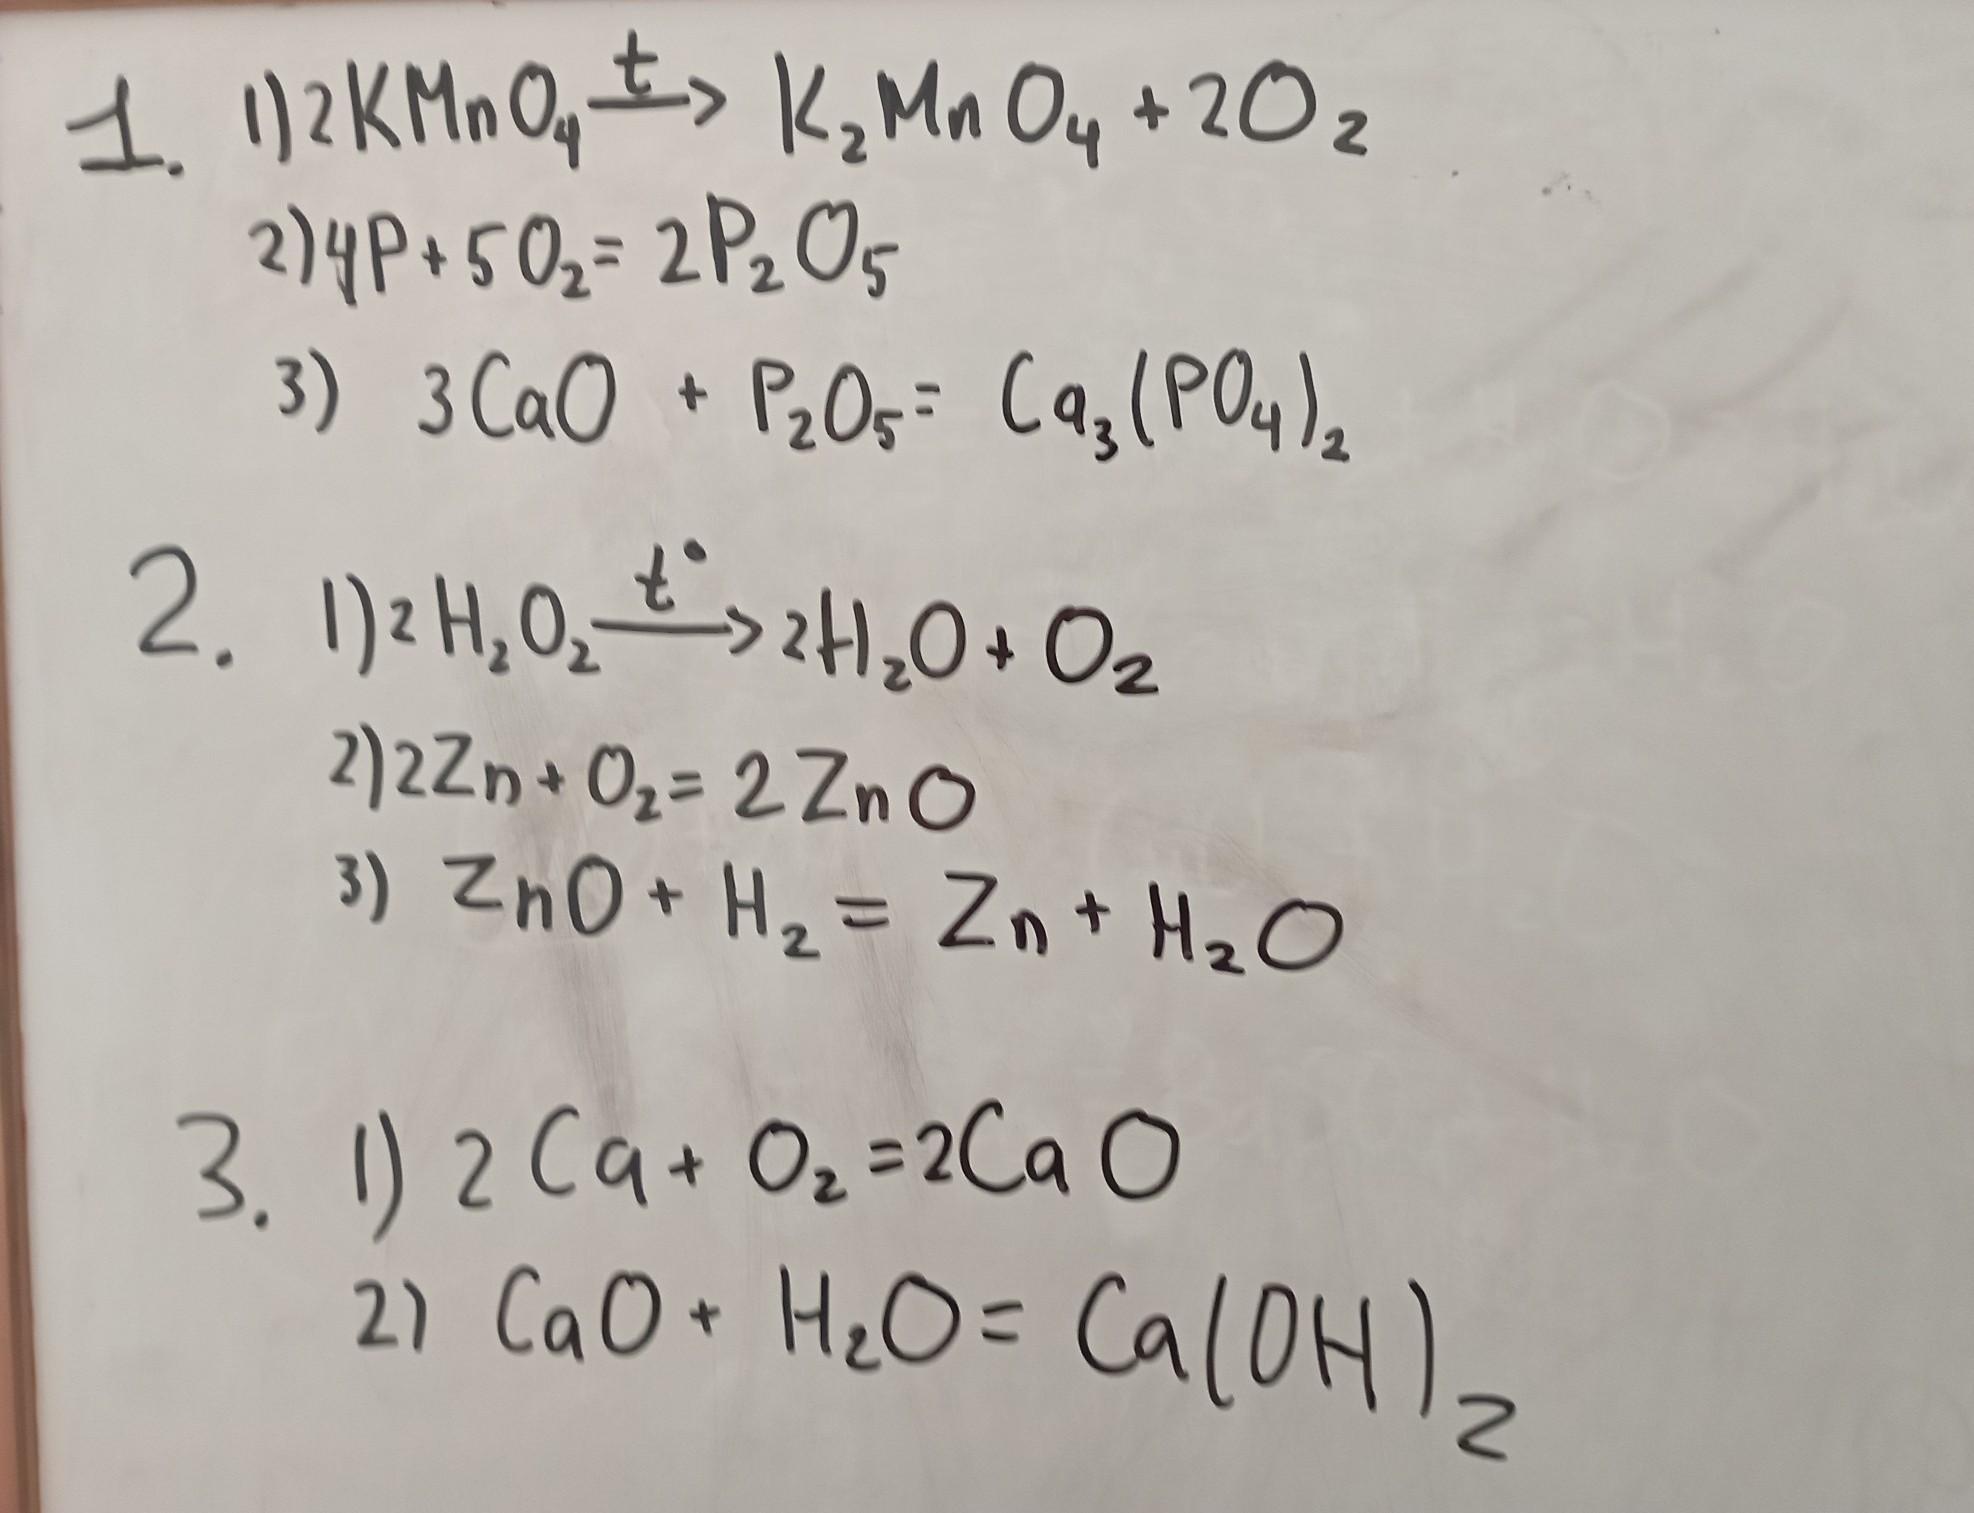 1. 1) 2KMnO₄ —t→ K₂MnO₄ + 2O₂
2) 4P + 5O₂ = 2P₂O₅
3) 3CaO + P₂O₅ = Ca₃(PO₄)₂
2. 1) 2H₂O₂ —t°→ 2H₂O + O₂
2) 2Zn + O₂ = 2ZnO
3) ZnO + H₂ = Zn + H₂O
3. 1) 2Ca + O₂ = 2CaO
2) CaO + H₂O = Ca(OH)₂